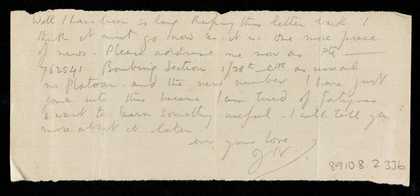 Well I have been so long keeping this letter back I
think it must go now as it is one more piece
of news. Please address me now as Pte
762541 Bombing Section 1/28th as usual
no Platoon. and the new number I have just
gone into this because I am tired of fatigues
& want to learn something useful. I will tell you
more about it later
ever your love
89108 2 336